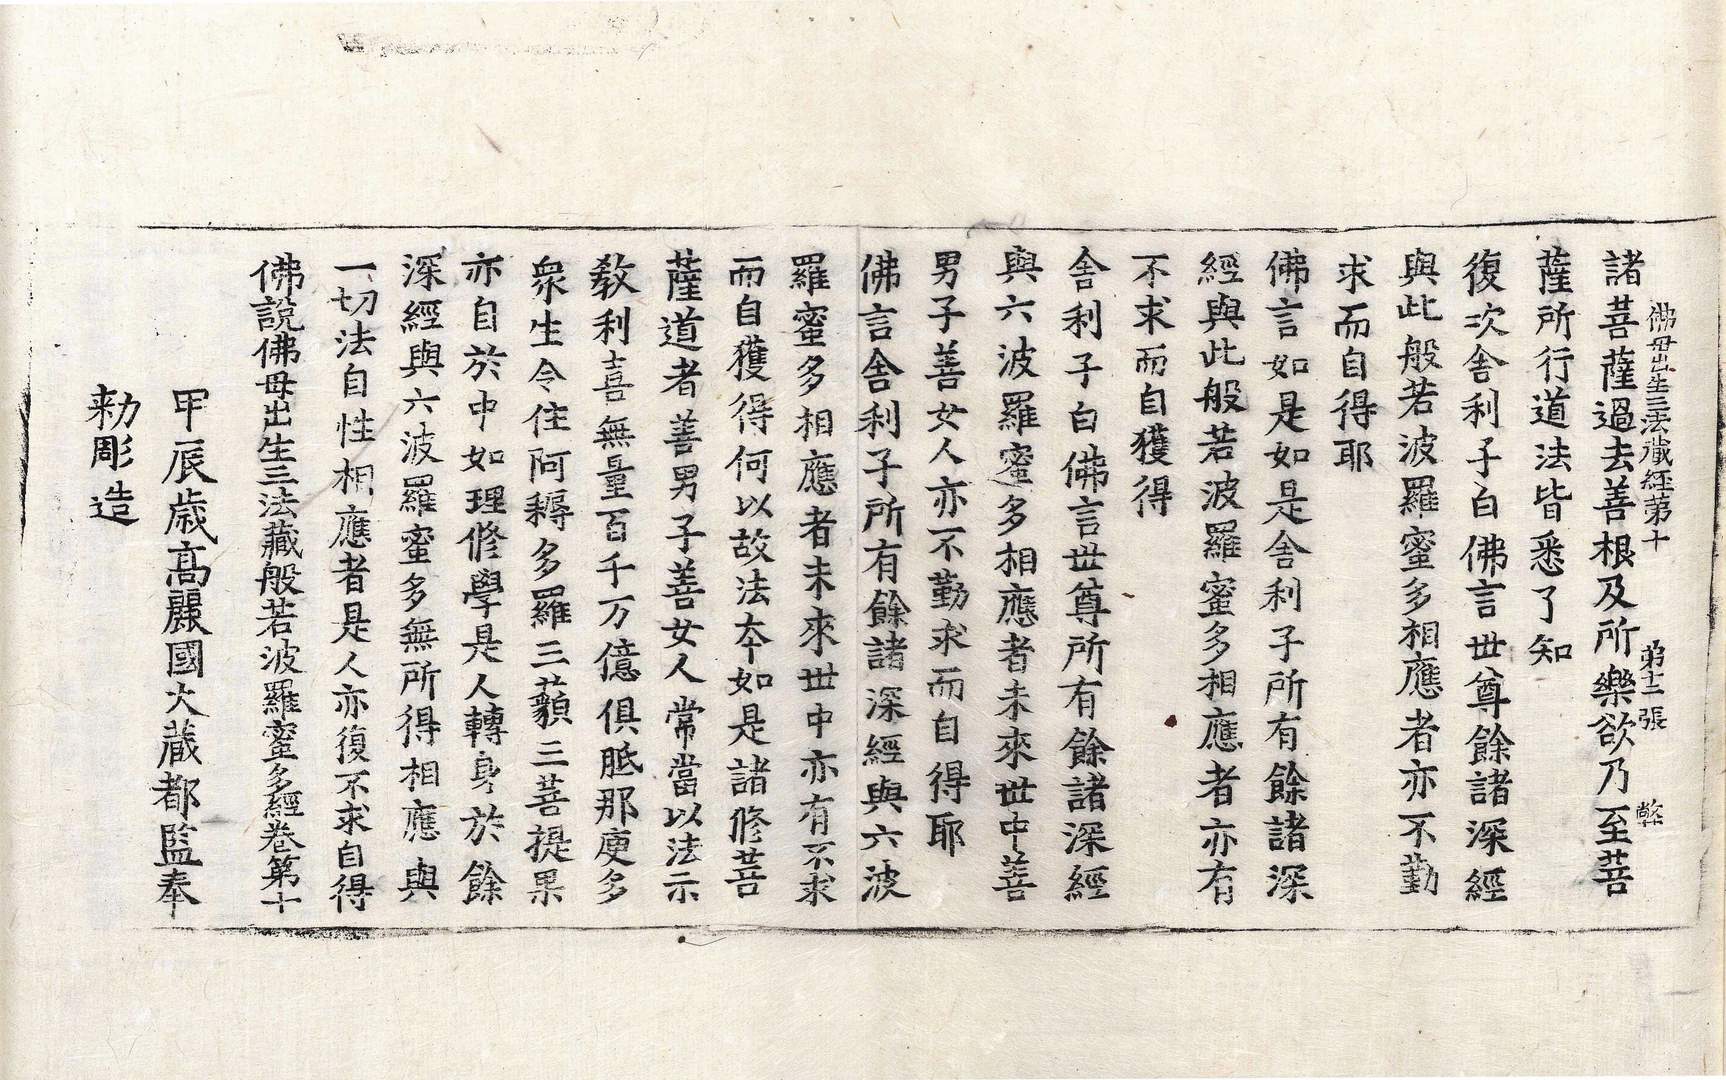 佛母出生三法藏經第十 第十二張
諸菩薩過去善根及所樂欲乃至菩
薩所行道法皆悉了知
復次舍利子白佛言世尊餘諸深經
與此般若波羅蜜多相應者亦不勤
求而自得耶
佛言如是如是舍利子所有餘諸深
經與此般若波羅蜜多相應者亦有
不求而自獲得
舍利子白佛言世尊所有餘諸深經
與六波羅蜜多相應者未來世中善
男子善女人亦不勤求而自得耶
佛言舍利子所有餘諸深經與六波
羅蜜多相應者未來世中亦有不求
而自獲得何以故法夲如是諸修菩
薩道者善男子善女人常當以法示
教利喜無量百千万億俱胝那庾多
衆生令住阿耨多羅三藐三菩提果
亦自於中如理修學是人轉身於餘
深經與六波羅蜜多無所得相應與
一切法自性相應者是人亦復不求自得
佛說佛母出生三法藏般若波羅蜜多經卷第十
甲辰歲高麗國大藏都監奉
勑彫造